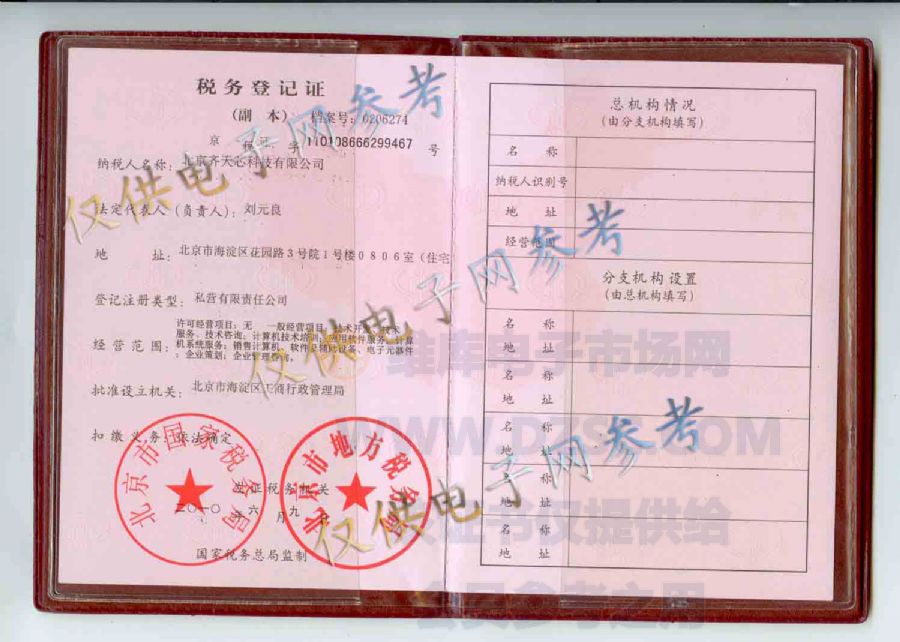 税务登记证
(副 本) 档案号: 0206274
京 税 字 110108666299467 号
纳税人名称: 北京齐天芯科技有限公司
法定代表人(负责人): 刘元良
地 址: 北京市海淀区花园路3号院1号楼0806室(住宅
登记注册类型: 私营有限责任公司
许可经营项目:无 一般经营项目:技术开发、技术
服务、技术咨询;计算机技术培训;应用软件服务;计算
经营范围: 机系统服务;销售计算机、软件及辅助设备、电子元器件
;企业策划;企业管理咨询。
批准设立机关: 北京市海淀区工商行政管理局
扣缴义务: 依法确定
发证税务机关
二〇一〇年六月九日
国家税务总局监制
北京市国家税务局
北京市地方税务局
总机构情况
(由分支机构填写)
名 称
纳税人识别号
地 址
经营范围
分支机构设置
(由总机构填写)
名 称
地 址
名 称
地 址
名 称
地 址
名 称
地 址
名 称
地 址
仅供电子网参考
仅供电子网参考
仅供电子网参考
维库电子市场网
WWW.DZSC.COM
此证书仅提供给
会员参考之用